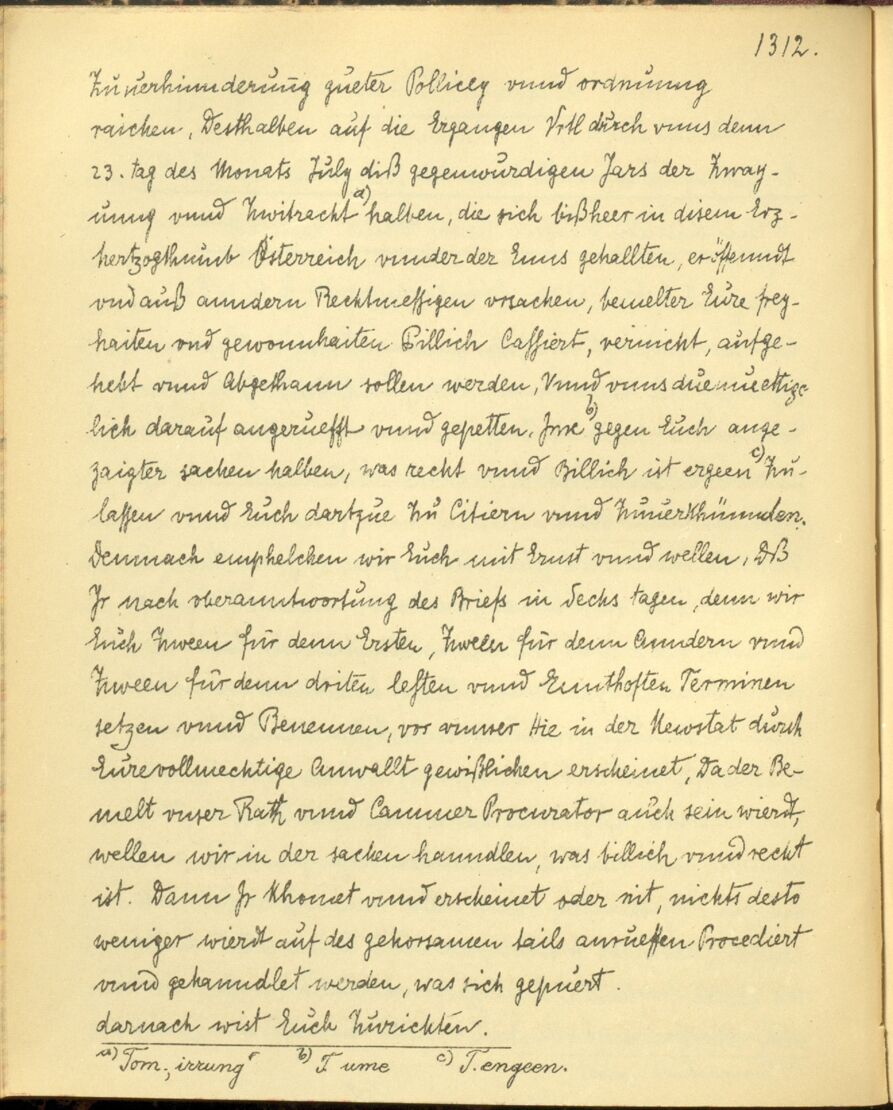 1312.
Zuuerhinnderung gueter Pollicey vnnd ordnung
raichen, Desthalben auf die Ergangen Vrtl durch vnns denn
23. tag des Monats July diß gegenwurdigen Jars der Zway-
unng vnnd Zwitracht a) halben, die sich bißheer in disem Erz-
hertzogthumb Österreich vnnder der Enns gehallten, eröffenndt
vnd auß anndern Rechtmessigen vrsachen, bemelter Eure frey-
haiten vnd gewonnhaiten Billich Cassiert, vernicht, aufge-
hebt vnnd Abgethann sollen werden, Vnnd vnns diemuettige-
lich darauf angeruefft vnnd gepetten, Jme b) gegen Euch ange-
zaigter sachen halben, was recht vnnd Billich ist ergeen c) Zu-
lassen vnnd Euch dartzue Zu Citiern vnnd Zuuerkhünnden.
Demnach emphelchen wir Euch mit Ernst vnnd wellen, Dß
Jr nach vberanntwortung des Briefs in Sechs tagen, denn wir
Euch Zween für denn Ersten, Zween für denn Anndern vnnd
Zween für denn driten lessten vnnd Ennthafften Terminen
setzen vnnd Benennen, vor vnnser Hie in der Newstat durch
Eure vollmechtige Anwallt gewißlichen erscheinet, Da der Be-
melt vnser Rath vnnd Cammer Procurator auch sein wierdt,
wellen wir in der sachen hanndlen, was billich vnnd recht
ist. Dann Jr Khomet vnnd erscheinet oder nit, nichts desto
weniger wierdt auf des gehorsamen tails anrueffen Procediert
vnnd gehanndlet werden, was sich gepuert.
darnach wist Euch Zurichten.
a) Tom: „irrung“ b) T ume c) T. engeen.